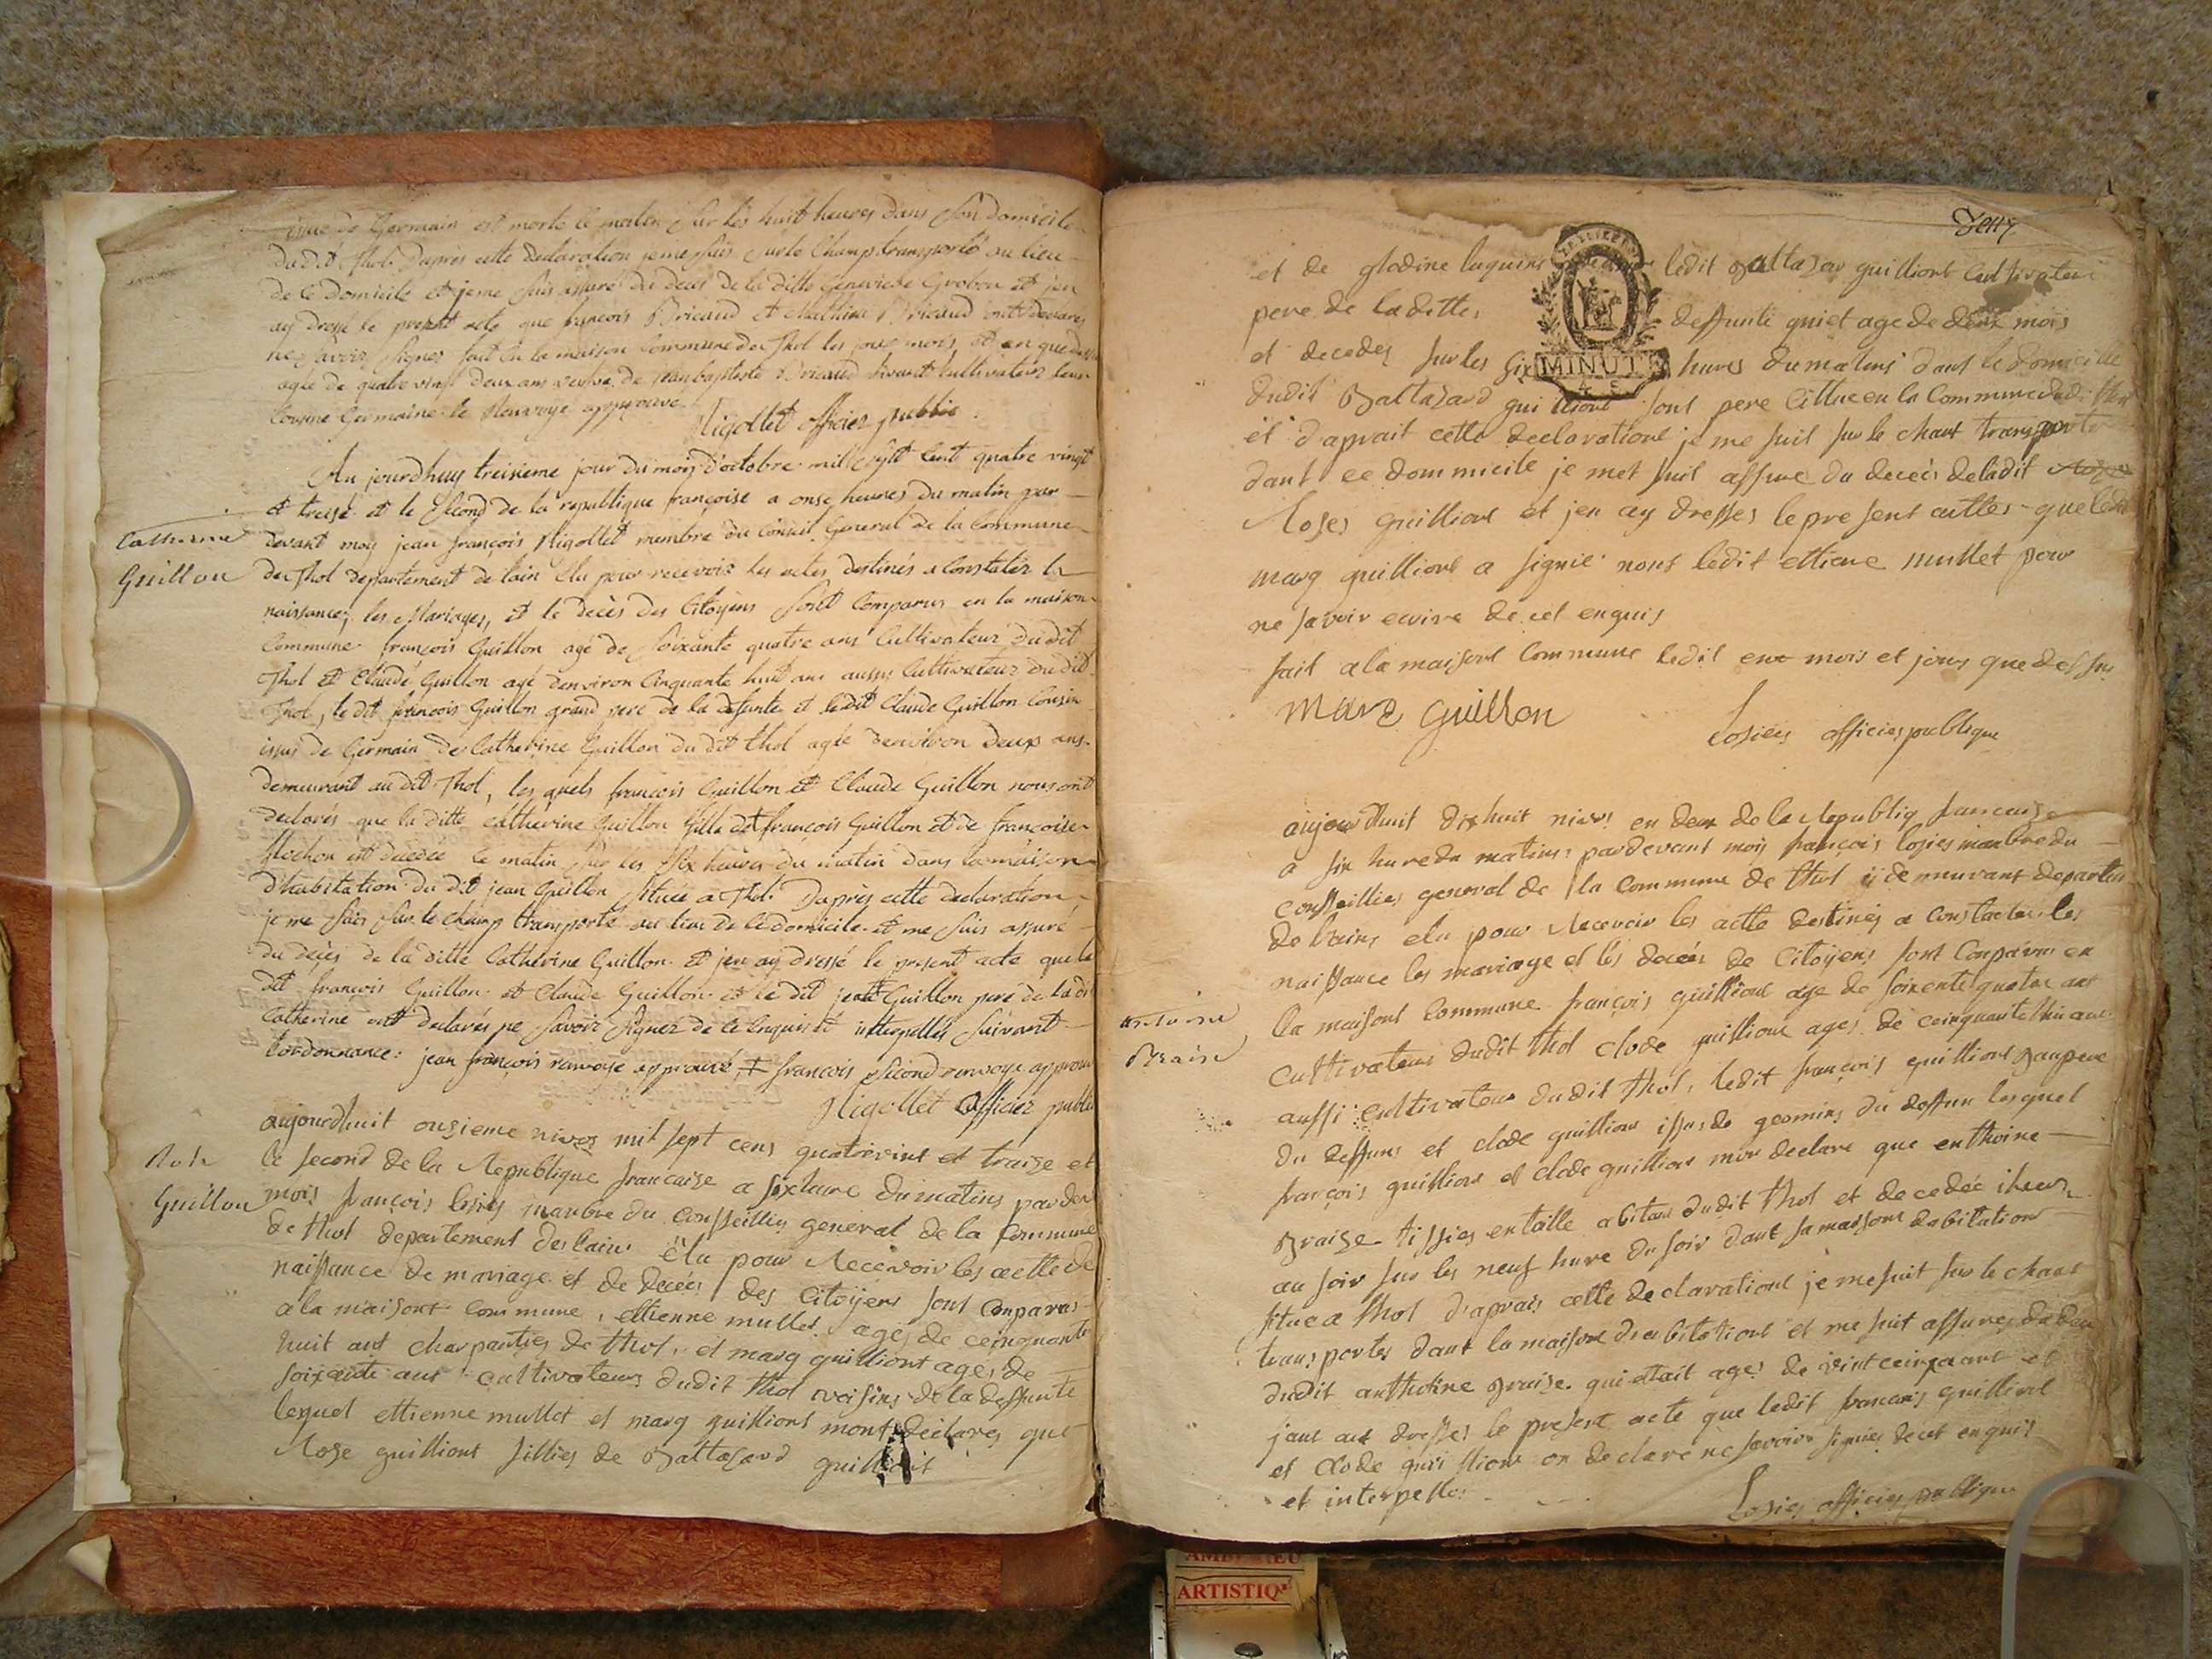 issue de Germain est morte ce matin sur les huit heures dans son domicile
du dit thol. D'après cette declaration je me suis sur le champ transporté au lieu
de ce domicile et je me suis assuré du deces de la ditte Genevieve Grobon et j'en
ay dressé le present acte que françois Bricaud et Mathieu Bricaud ont declarés
signer fait en la maison commune de Thol les jour mois et an que dessus
agée de quatre vingt deux ans veufve de jean baptiste Bricaud vivant cultivateur leur
cousine Germaine le Renvoye approuvé
Nigollet officier public
Catherine
Guillon
Au jourdhuy treisieme jour du mois d'octobre mil sept cent quatre vingt
et treise et le second de la republique françoise a onse heures du matin par
devant moy jean françois Nigollet membre du conseil General de la Commune
de Thol departement de lain elu pour recevoir les actes destinés a Constater la
naissance, les Mariages, et le decès des Citoyens sont Comparus en la maison
Commune françois Guillon agé de soixante quatre ans Cultivateur du dit
Thol et Claude Guillon agé denviron Cinquante huit ans aussy Cultivateur du dit
Thol, le dit françois Guillon grand pere de la defunte et le dit Claude Guillon Cousin
issus de Germain de Catherine Guillon du dit thol agée denviron deux ans
demeurant au dit Thol, les quels françois Guillon et Claude Guillon nous ont
declarés que la ditte Catherine Guillon fille de françois Guillon et de françoise
Mochon est decedée ce matin sur les six heures du matin dans la maison
d'habitation du dit jean Guillon située a Thol. D'après cette declaration
je me suis sur le champ transporté au lieu de ce domicile et me suis assuré
du decès de la ditte Catherine Guillon et jen ay dressé le present acte que le
dit françois Guillon et Claude Guillon et le dit jean Guillon pere de la dit
Catherine ont declarés ne savoir signer de ce Enquis et interpellés suivant
l'ordonnance: jean françois renvoye approuvé, ‡ françois second renvoye approuvé
Nigollet Officier public
Rose
Guillon
aujourdhuit onsieme nivos mil sept cens quatrevint et traize et
le second de la Republique francaise a six hure du matins par den
mois françois losies manbre du conseillies general de la Commune
de thol departement des lains elu pour Recevoir les actte de
naissance de mariage et de decées des citoyens sont Conparus
a la maisont commune, ettienne mullet ages de ceinquante
huit ant charpanties de thol, et marq guilliont ages de
soixante ant cultivateurs dudit thol voisins de la deffunte
lequel ettienne mullet et marq guilliont mont declares que
Rose guilliont fillies de Baltasard guilliont
et de glodine luquins ledit Baltazar guilliont Cultivateur
pere de laditte, deffunte qui et age de deux mois
et decedes sur les six hures du matins dant le domicille
MINUT
dudit Baltasard guilliont sont pere cittuee en la Commune dudit thol
et d'aprait cette declarationt je me suit sur le chant transporte
dant ce dommicile je met suit assure du decées deladit
Roses guilliont et jen ay dresses le present actte que ledit
marq guilliont a signie nont ledit ettiene mullet pour
ne savoir ecrire de cet enquis
fait a la maisont Commune ledit ent mois et jours que dessus
marc guillon
Losies officies publique
antoine
Braise
aujourdhuit dix huit nivos en deux de la Republiq francaize
a six hure du matins pardevant moy françois losies manbre du
conseillies general de la commune de thol y demeurant departem
de lains elu pour Recevoir les actte destines a constacter les
naissance les mariage et les decées de Citoyens sont Conparus en
la maisont Commune françois guilliont age de soixente quatre ant
cultivateur dudit thol clode guilliont ages de ceinquante huit ans
aussi cultivateur dudit thol, ledit françois guilliont
du deffuns et clode guilliont issus de germins du deffun lesquel
françois guilliont et clode guilliont mon declare que enthoine
Braize tissies en toille abitant dudit thol et decedée ihier
au soir sur les neuf hure du soir dant sa maisont dabitationt
situe a thol daprais cette declarationt je me suit sur le chant
transportes dant la maisont dabitationt et me suit assures de
dudit anthoine Braize qui etait ages de veint ceinq ant et
jant ait dresses le present acte que ledit francois guilliont
et clode guilliont on declare ne savoire signies de cet enquis
et interpelles
Losies officies publique
ARTISTIQ